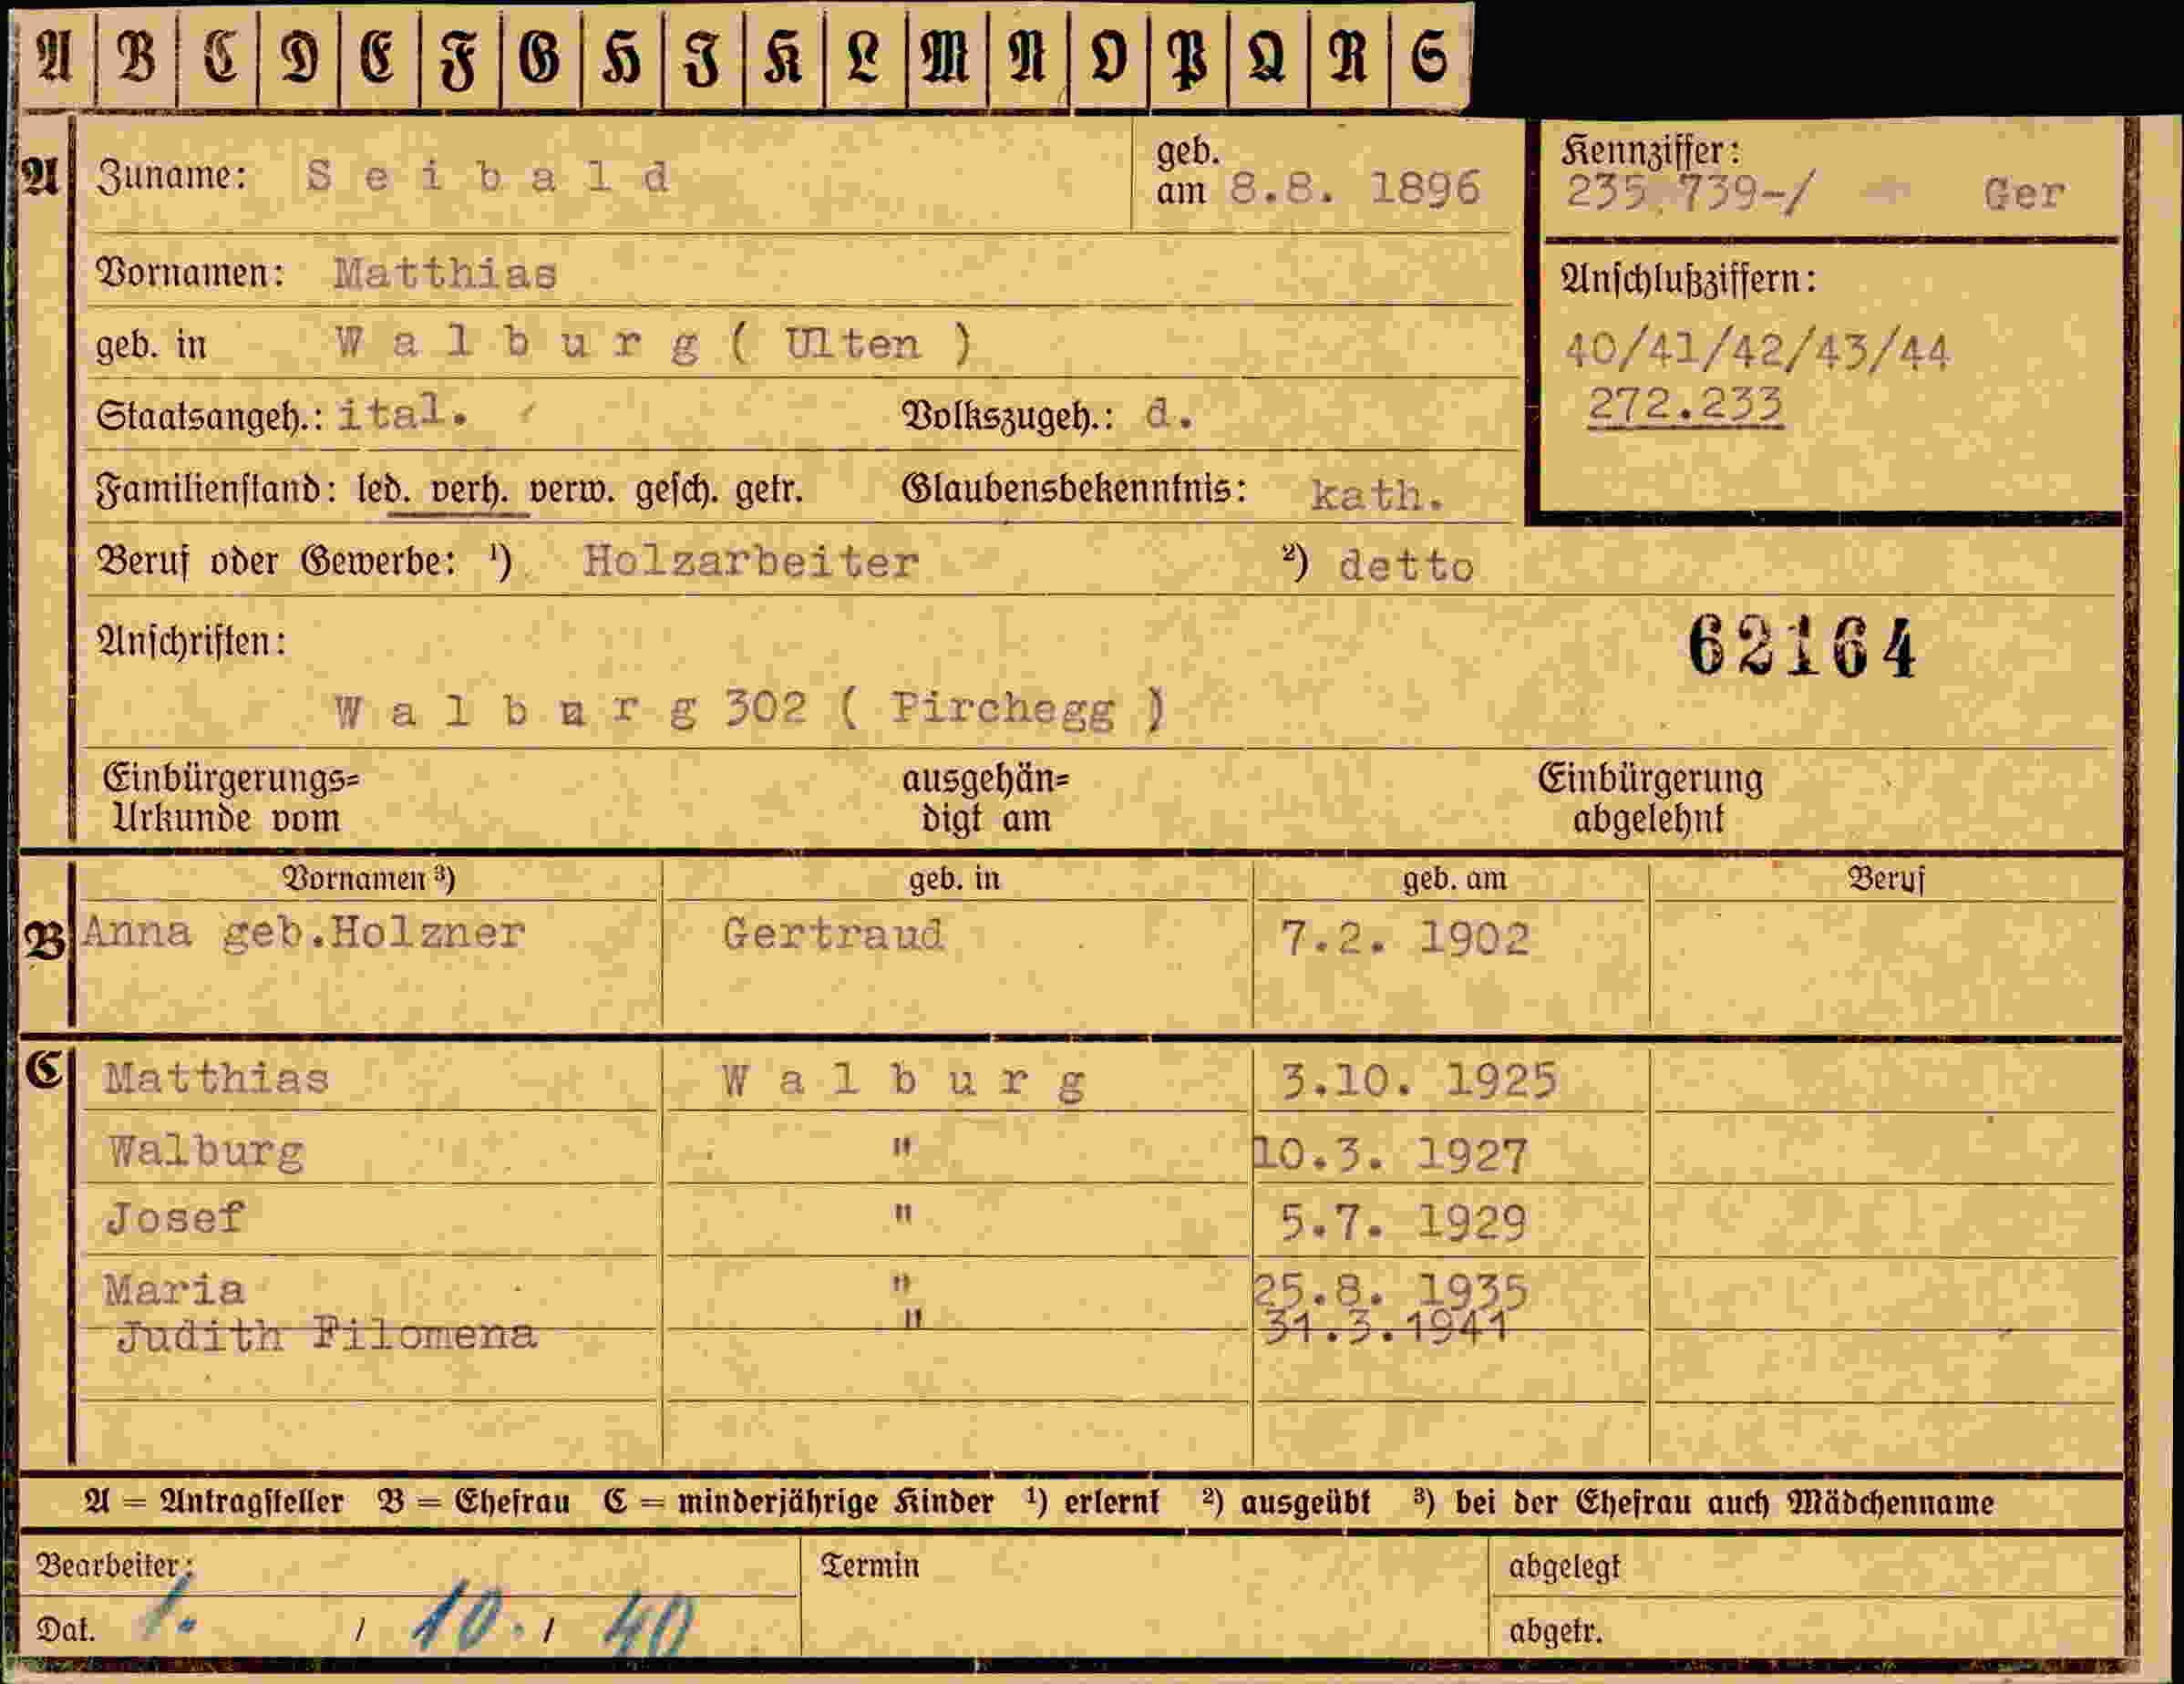 A B C D E F G H I K L M N O P Q R S
A Zuname: Seibald geb. am 8.8. 1896 Kennziffer: 235.739-/ Ger
Vornamen: Matthias Anschlußziffern:
geb. in Walburg ( Ulten ) 40/41/42/43/44
Staatsangeh.: ital. Volkszugeh.: d. 272.233
Familienstand: led. verh. verw. gesch. getr. Glaubensbekenntnis: kath.
Beruf oder Gewerbe: ¹) Holzarbeiter ²) detto
Anschriften: 62164
Walburg 302 ( Pirchegg )
Einbürgerungs= ausgehän= Einbürgerung
Urkunde vom digt am abgelehnt
Vornamen ³) geb. in geb. am Beruf
B Anna geb.Holzner Gertraud 7.2. 1902
C Matthias Walburg 3.10. 1925
Walburg " 10.3. 1927
Josef " 5.7. 1929
Maria " 25.8. 1935
Judith Filomena " 31.3.1941
A = Antragsteller B = Ehefrau C = minderjährige Kinder ¹) erlernt ²) ausgeübt ³) bei der Ehefrau auch Mädchenname
Bearbeiter: Termin abgelegt
Dat. 1. / 10. / 40 abgetr.